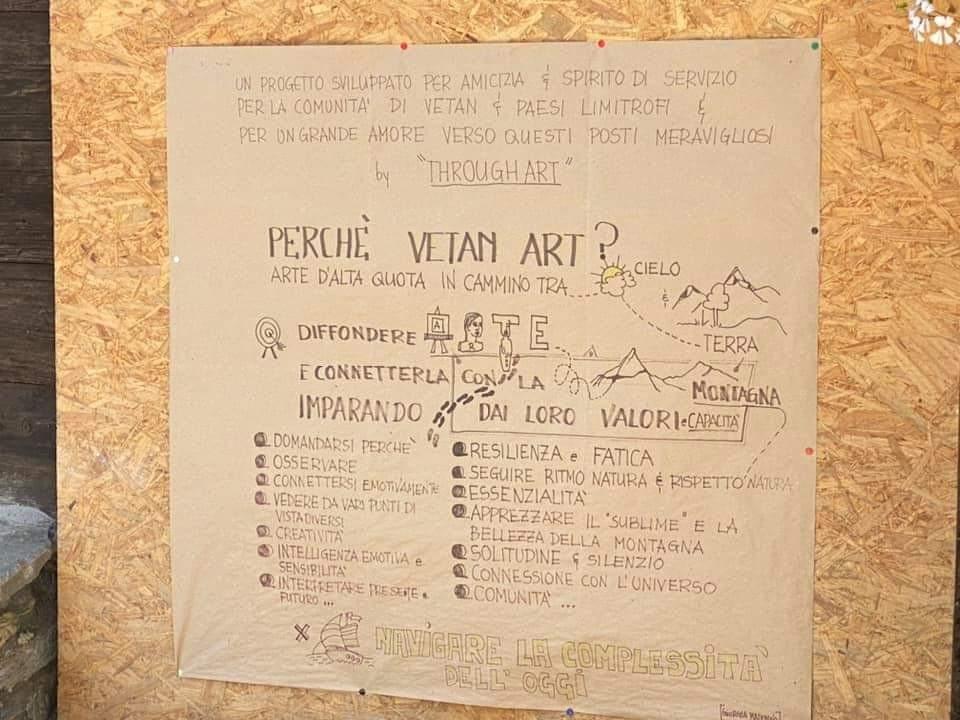 UN PROGETTO SVILUPPATO PER AMICIZIA & SPIRITO DI SERVIZIO
PER LA COMUNITA' DI VETAN & PAESI LIMITROFI &
PER UN GRANDE AMORE VERSO QUESTI POSTI MERAVIGLIOSI
by "THROUGH ART"
PERCHÈ VETAN ART?
ARTE D'ALTA QUOTA IN CAMMINO TRA
CIELO
&
TERRA
DIFFONDERE ARTE
E CONNETTERLA CON LA MONTAGNA
IMPARANDO DAI LORO VALORI e CAPACITA'
DOMANDARSI PERCHÈ
OSSERVARE
CONNETTERSI EMOTIVAMENTE
VEDERE DA VARI PUNTI DI
VISTA DIVERSI
CREATIVITA'
INTELLIGENZA EMOTIVA e
SENSIBILITA'
INTERPRETARE PRESENTE e
FUTURO ...
RESILIENZA e FATICA
SEGUIRE RITMO NATURA & RISPETTO NATURA
ESSENZIALITA'
APPREZZARE IL "SUBLIME" E LA
BELLEZZA DELLA MONTAGNA
SOLITUDINE & SILENZIO
CONNESSIONE CON L'UNIVERSO
COMUNITA' ...
X NAVIGARE LA COMPLESSITA'
DELL'OGGI